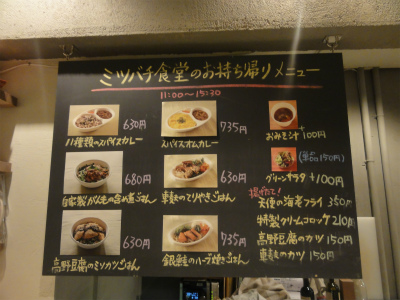 ミツバチ食堂のお持ち帰りメニュー
11:00〜15:30
630円
八種類のスパイスカレー
735円
スパイスオムカレー
おみそ汁 +100円
680円
自家製がんもの含め煮ごはん
630円
車麩のてりやきごはん
(単品150円)
グリーンサラダ +100円
揚げたて!
天使の海老フライ 360円
特製クリームコロッケ 210円
高野豆腐のカツ 150円
車麩のカツ 150円
630円
高野豆腐のミソカツごはん
735円
銀鮭のハーブ焼きごはん